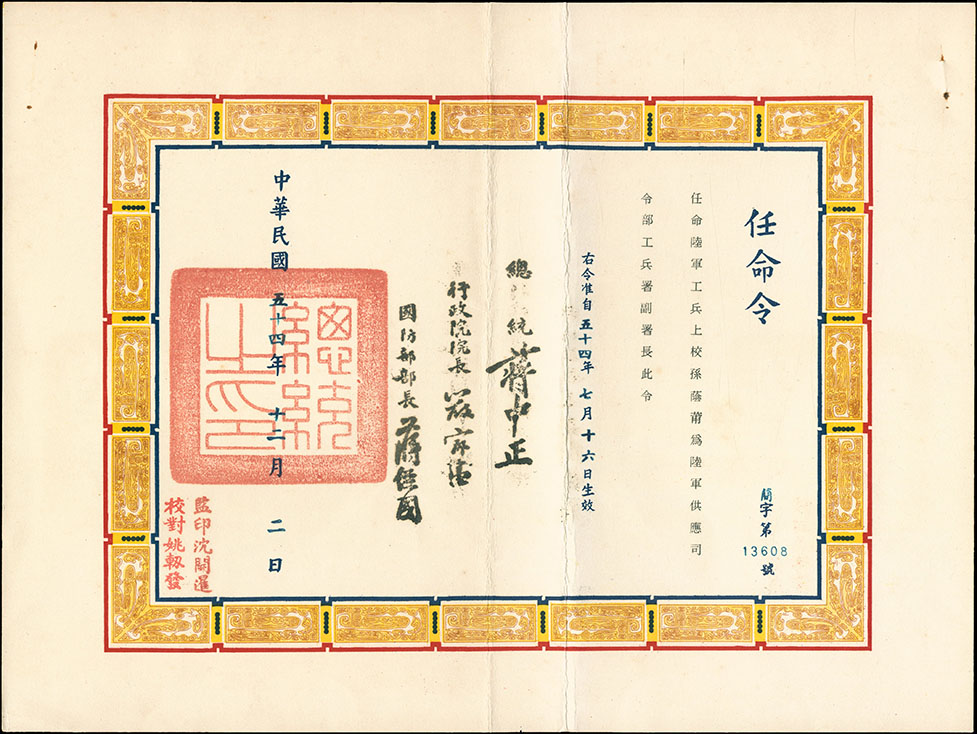 任命令
簡字第
13608
號
任命陸軍工兵上校孫蔭莆爲陸軍供應司
令部工兵署副署長此令
右令准自五十四年七月十六日生效
總統 蔣中正
行政院院長 嚴家淦
國防部部長 蔣經國
中華民國五十四年十二月二日
總統之印
監印沈
校對姚軔發